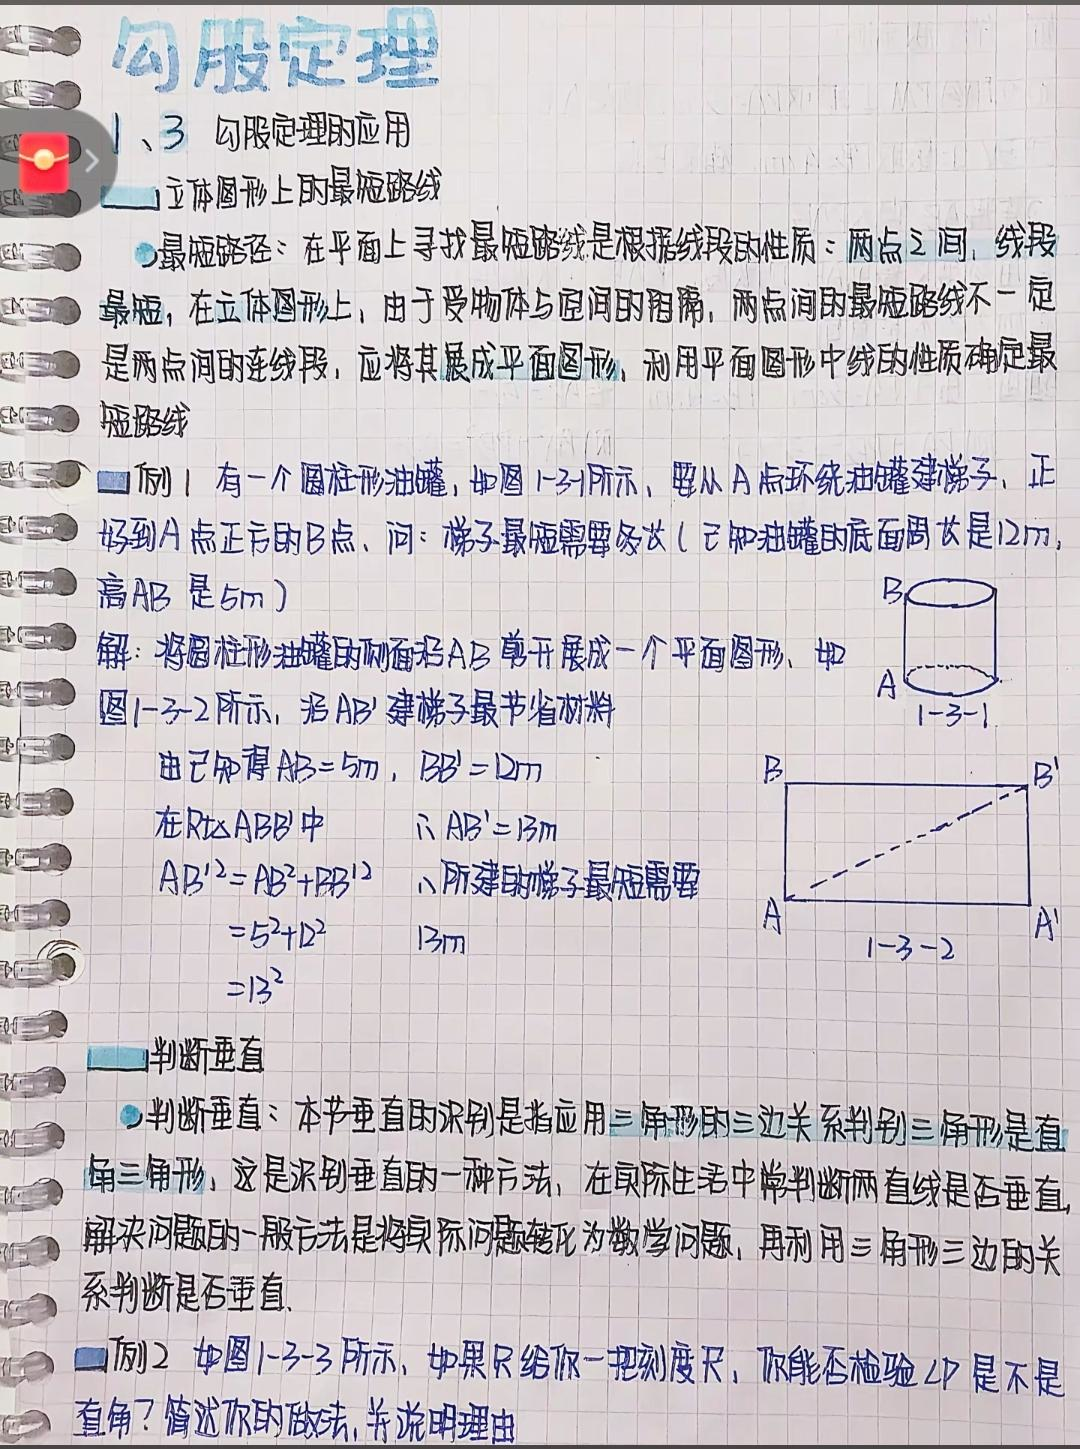 勾股定理
1、3 勾股定理的应用
立体图形上的最短路线
最短路径：在平面上寻找最短路线是根据线段的性质：两点之间，线段
最短，在立体图形上，由于受物体与空间的阻隔，两点间的最短路线不一定
是两点间的连线段，应将其展成平面图形，利用平面图形中线的性质确定最
短路线
例1 有一个圆柱形油罐，如图1-3-1所示，要从A点环绕油罐建梯子，正
好到A点正方的B点，问：梯子最短需要多长（已知油罐的底面周长是12m，
高AB是5m）
B
A
1-3-1
解：将圆柱形油罐的侧面沿AB剪开展成一个平面图形，如
图1-3-2所示，沿AB'建梯子最节省材料
由已知得AB=5m，BB'=12m
在Rt△ABB'中 ∴AB'=13m
AB'²=AB²+BB'² ∴所建的梯子最短需要
=5²+12² 13m
=13²
B B'
A A'
1-3-2
判断垂直
判断垂直：本节垂直的识别是指应用三角形的三边关系判别三角形是直
角三角形，这是识别垂直的一种方法，在实际生活中常判断两直线是否垂直，
解决问题的一般方法是将实际问题转化为数学问题，再利用三角形三边的关
系判断是否垂直.
例2 如图1-3-3所示，如果只给你一把刻度尺，你能否检验∠P是不是
直角？简述你的做法，并说明理由